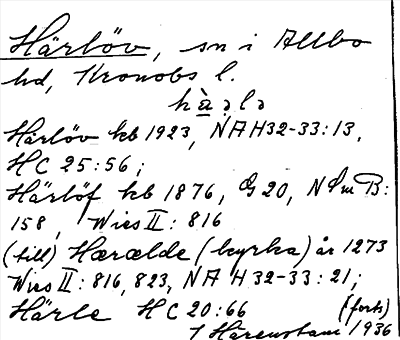 Härlöv, sn i Allbo
hd, Kronobs l.
hàələ
Härlöv kb 1923, NAH32-33:13,
HC 25:56;
Härlöf kb 1876, G 20, N Sm B:
158, Wies II: 816
(till) Hærælde (kyrka) år 1273
Wies II: 816, 823, NA H 32-33: 21;
Härle HC 20:66 (forts)
1936